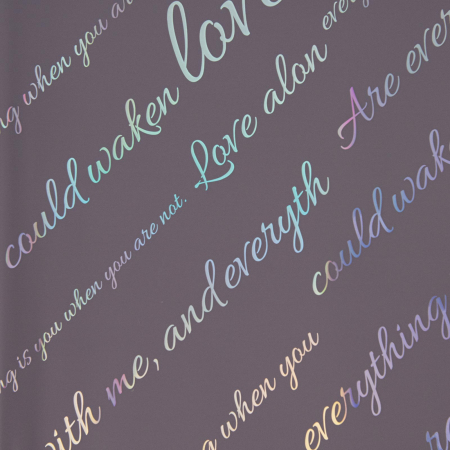 ng when you are
could waken love
every
ng is you when you are not. Love alon
Are ever
with me, and everyth
could wak
g when you
everything